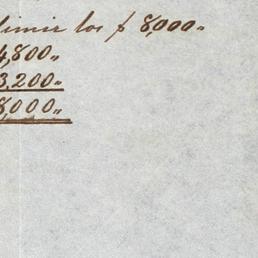 dimir los $ 8,000„
4,800„
3,200„
8,000„